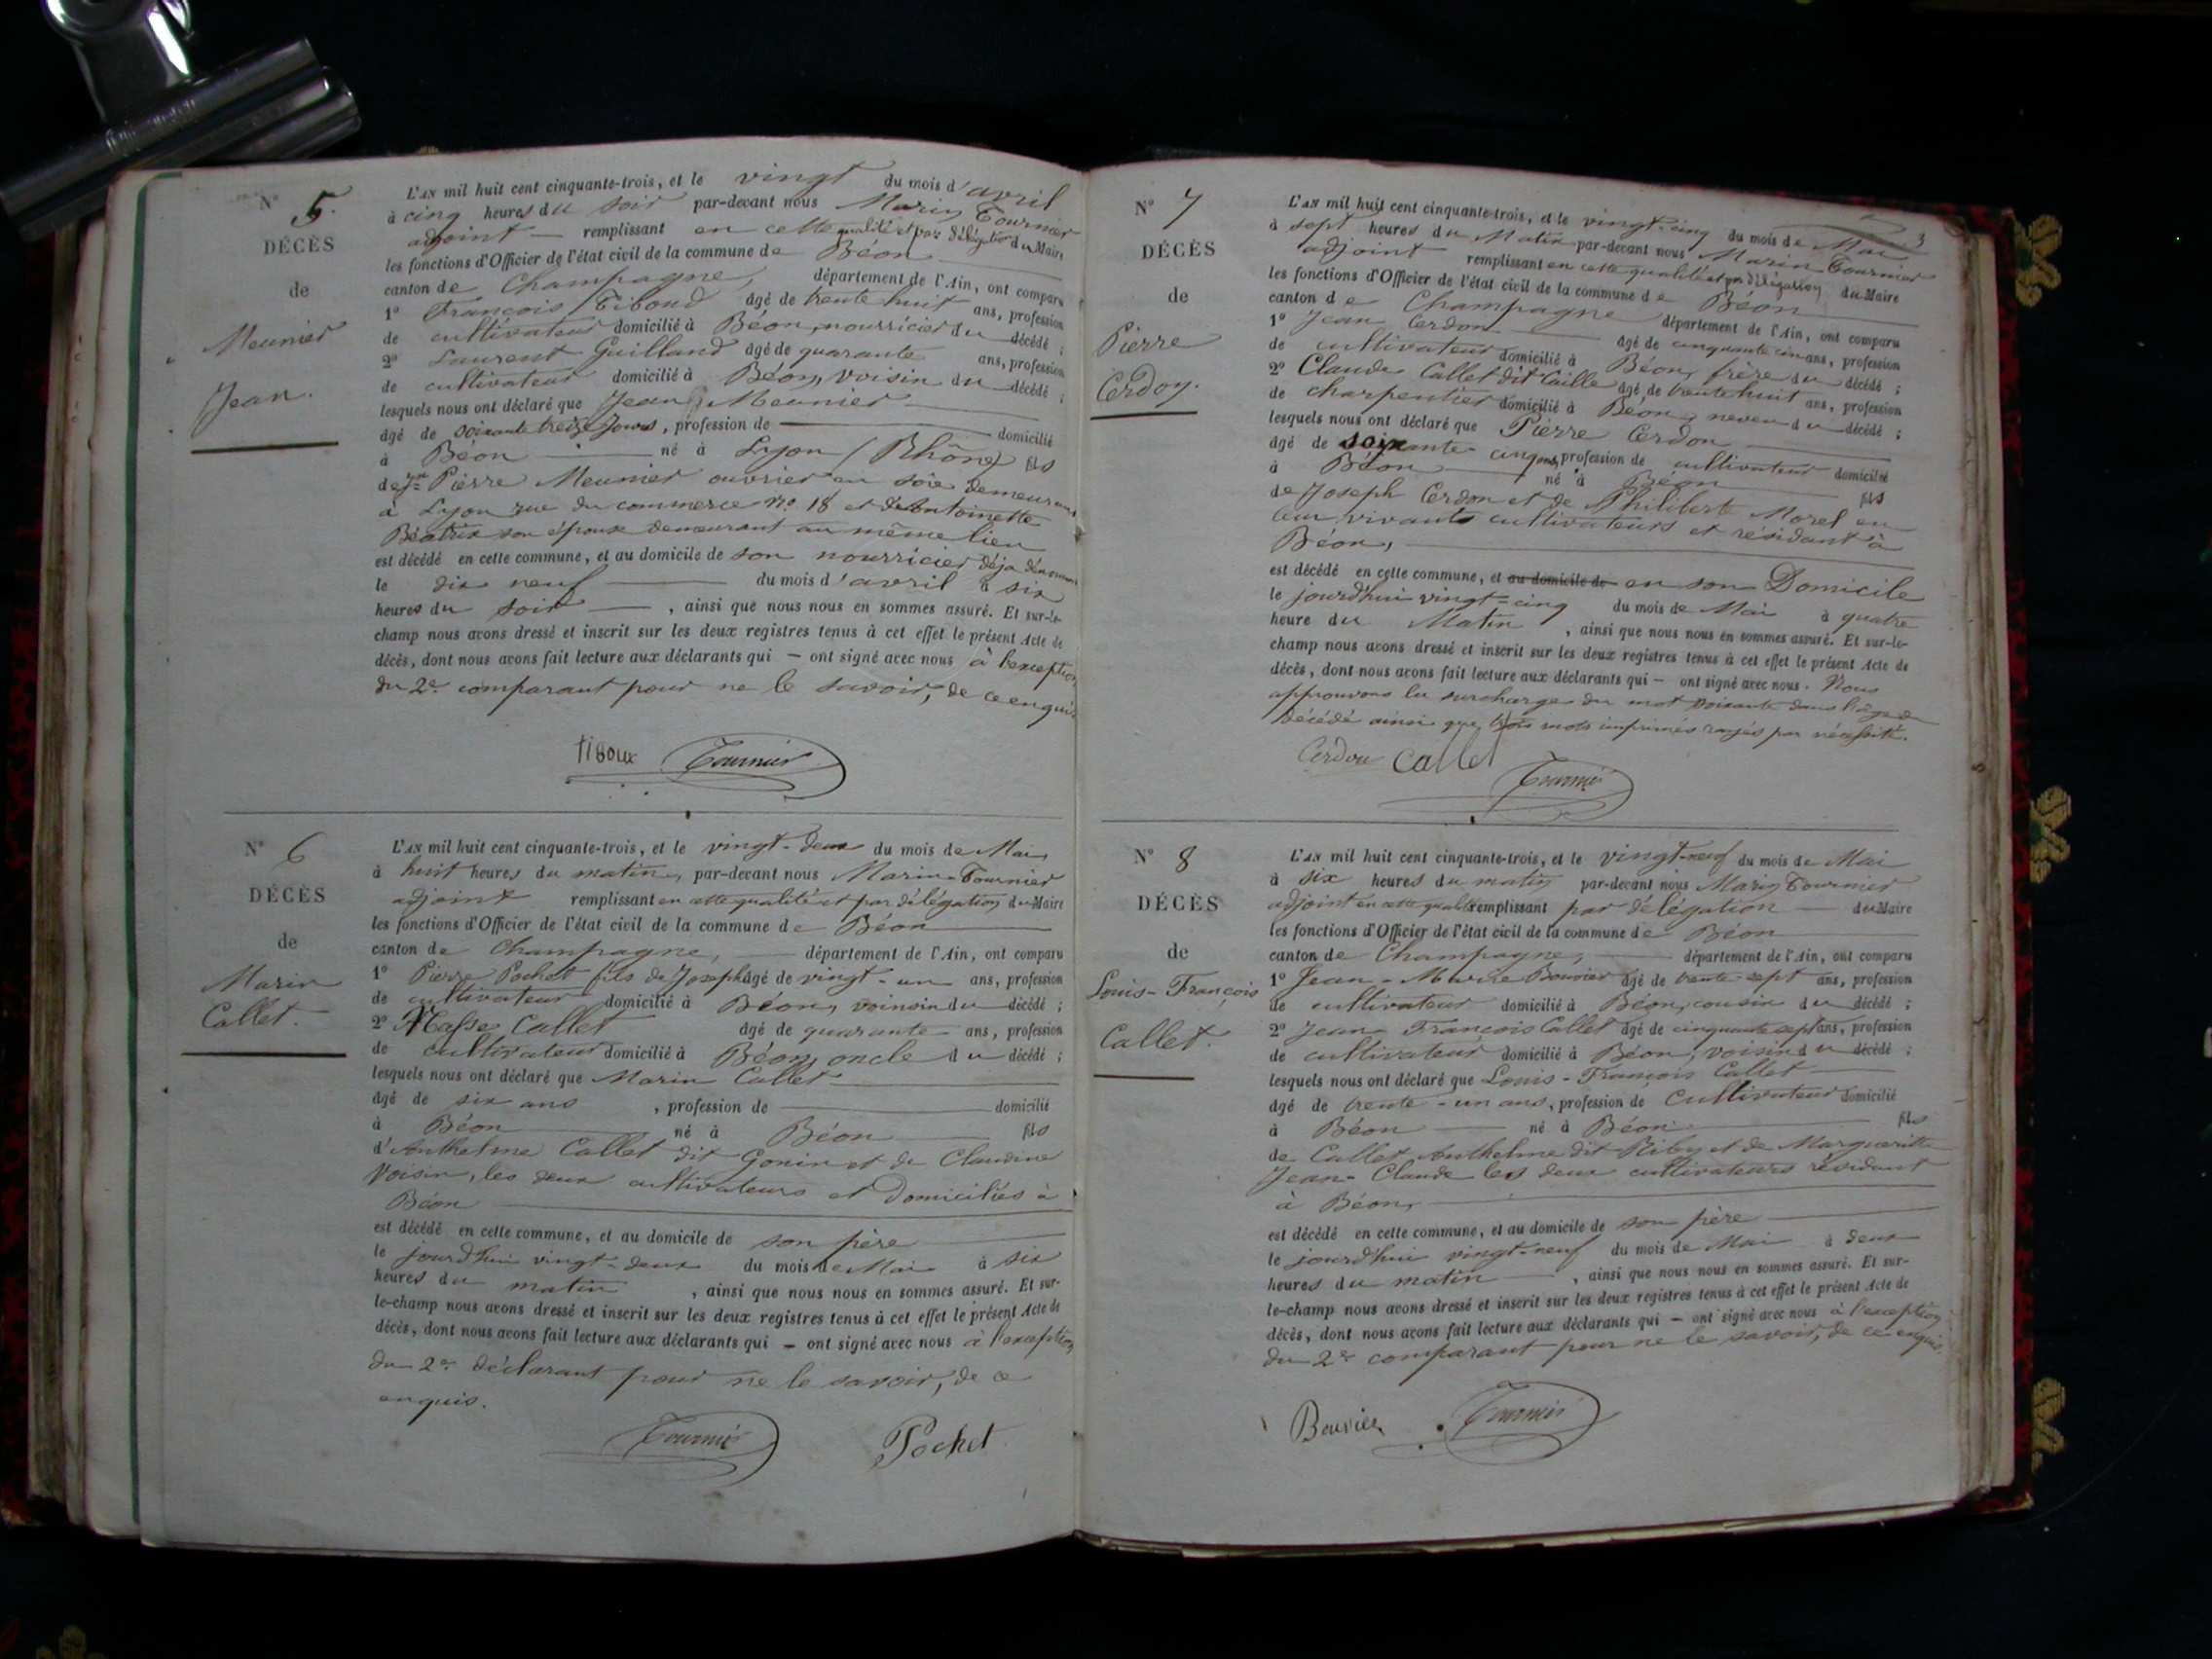 N° 5.
DÉCÈS
de
Meunier
Jean.
L'AN mil huit cent cinquante-trois, et le vingt du mois d'avril
à cinq heures du soir par-devant nous Marin Tournier
adjoint — remplissant en cette qualité et par délégation du Maire
les fonctions d'Officier de l'état civil de la commune de Béon
canton de Champagne, département de l'Ain, ont comparu
1° François Tiboud âgé de trente huit ans, profession
de cultivateur domicilié à Béon, nourricier du décédé ;
2° Laurent Guilland âgé de quarante ans, profession
de cultivateur domicilié à Béon, voisin du décédé ;
lesquels nous ont déclaré que Jean Meunier
âgé de soixante treize jours, profession de — domicilié
à Béon — né à Lyon (Rhône) fils
de Pierre Meunier ouvrier en soie demeurant
à Lyon rue du commerce no. 18 et de Antoinette
Béatrix son épouse demeurant au même lieu
est décédé en cette commune, et au domicile de son nourricier déja dénommé
le dix neuf — du mois d'avril à six
heures du soir — , ainsi que nous nous en sommes assuré. Et sur-le-
champ nous avons dressé et inscrit sur les deux registres tenus à cet effet le présent Acte de
décès, dont nous avons fait lecture aux déclarants qui — ont signé avec nous à l'exception
du 2e comparant pour ne le savoir, de ce enquis
Tiboux Tournier
N° 6
DÉCÈS
de
Marin
Callet.
L'AN mil huit cent cinquante-trois, et le vingt-deux du mois de Mai
à huit heures du matin, par-devant nous Marin Tournier
adjoint remplissant en cette qualité et par délégation du Maire
les fonctions d'Officier de l'état civil de la commune de Béon
canton de Champagne, — département de l'Ain, ont comparu
1° Pierre Pochet fils de Joseph âgé de vingt-un ans, profession
de cultivateur domicilié à Béon, voinsin du décédé ;
2° Masse Callet âgé de quarante ans, profession
de cultivateur domicilié à Béon, oncle du décédé ;
lesquels nous ont déclaré que Marin Callet
âgé de six ans , profession de — domicilié
à Béon — né à Béon — fils
d'Anthelme Callet dit Gonin et de Claudine
Voisin, les deux cultivateurs et domiciliés à
Béon
est décédé en cette commune, et au domicile de son père
le jourd'hui vingt-deux du mois de Mai à six
heures du matin , ainsi que nous nous en sommes assuré. Et sur-
le-champ nous avons dressé et inscrit sur les deux registres tenus à cet effet le présent Acte de
décès, dont nous avons fait lecture aux déclarants qui — ont signé avec nous à l'exception
du 2e déclarant pour ne le savoir, de ce
enquis.
Tournier Pochet
3
N° 7
DÉCÈS
de
Pierre
Cerdon.
L'AN mil huit cent cinquante-trois, et le vingt-cinq du mois de Mai
à sept heures du Matin par-devant nous Marin Tournier
adjoint remplissant en cette qualité et par délégation du Maire
les fonctions d'Officier de l'état civil de la commune de Béon
canton de Champagne département de l'Ain, ont comparu
1° Jean Cerdon âgé de cinquante cinq ans, profession
de cultivateur domicilié à Béon, frère du décédé ;
2° Claude Callet dit Caille âgé de trente huit ans, profession
de charpentier domicilié à Béon, neveu du décédé ;
lesquels nous ont déclaré que Pierre Cerdon
âgé de soixante-cinq ans, profession de cultivateur domicilié
à Béon né à Béon fils
de Joseph Cerdon et de Philiberte Morel en
leur vivants cultivateurs et résidant à
Béon,
est décédé en cette commune, et au domicile de en son Domicile
le jourd'hui vingt-cinq du mois de Mai à quatre
heure du Matin , ainsi que nous nous en sommes assuré. Et sur-le-
champ nous avons dressé et inscrit sur les deux registres tenus à cet effet le présent Acte de
décès, dont nous avons fait lecture aux déclarants qui — ont signé avec nous. Nous
approuvons la surcharge du mot soixante dans l'âge du
décédé ainsi que trois mots imprimés rayés par nécessité.
Cerdon Callet
Tournier
N° 8
DÉCÈS
de
Louis-François
Callet.
L'AN mil huit cent cinquante-trois, et le vingt-neuf du mois de Mai
à six heures du matin par-devant nous Marin Tournier
adjoint en cette qualité remplissant par délégation — du Maire
les fonctions d'Officier de l'état civil de la commune de Béon
canton de Champagne, — département de l'Ain, ont comparu
1° Jean-Marie Bouvier âgé de trente-sept ans, profession
de cultivateur domicilié à Béon, cousin du décédé ;
2° Jean François Callet âgé de cinquante sept ans, profession
de cultivateur domicilié à Béon, voisin du décédé ;
lesquels nous ont déclaré que Louis-François Callet
âgé de trente-un ans, profession de Cultivateur domicilié
à Béon — né à Béon fils
de Callet Anthelme dit Riby et de Margueritte
Jean-Claude les deux cultivateurs résidant
à Béon,
est décédé en cette commune, et au domicile de son père
le jourd'hui vingt-neuf du mois de Mai à deux
heures du matin — , ainsi que nous nous en sommes assuré. Et sur-
le-champ nous avons dressé et inscrit sur les deux registres tenus à cet effet le présent Acte de
décès, dont nous avons fait lecture aux déclarants qui — ont signé avec nous à l'exception
du 2e comparant pour ne le savoir, de ce enquis.
Bouvier Tournier